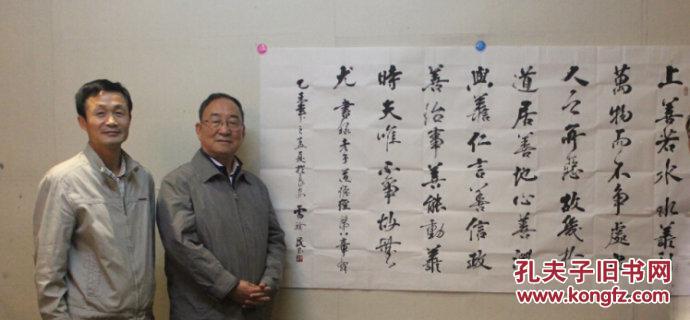 上善若水水善利
萬物而不争處
人之所惡故幾於
道居善地心善淵
與善仁言善信政
善治事善能動善
時夫唯不争故無
尤 書録老子道德經第八章
乙未
孔夫子旧书网
www.kongfz.com